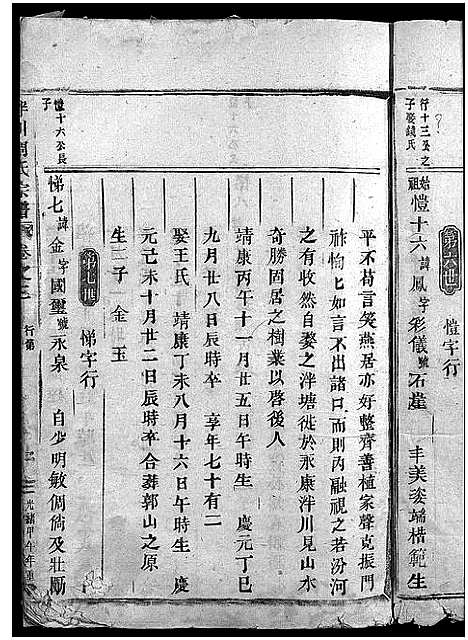 行十三公之
子娶錢氏
第六世
愷字行
始祖愷十六諱鳳字彩儀號石崖 丰美姿端楷範生
平不苟言笑燕居亦好整齊善植家聲克振門
祚恂恂如言不出諸口而則內融視之若汾河
之有收然自婺之泮塘徙於永康泮川見山水
奇勝固居之樹業以啓後人
靖康丙午十一月廿五日午時生 慶元丁巳
九月廿八日辰時卒 享年七十有二
娶王氏 靖康丁未八月十六日午時生 慶
元己未十月廿二日辰時卒合葬郭山之原
生一子 金玉
第七世
悌字行
愷十六公長
子
悌七諱金字國璽號永泉 自少明敏倜儻及壯勵
周氏宗譜 卷之二 行第
光緒甲午年重